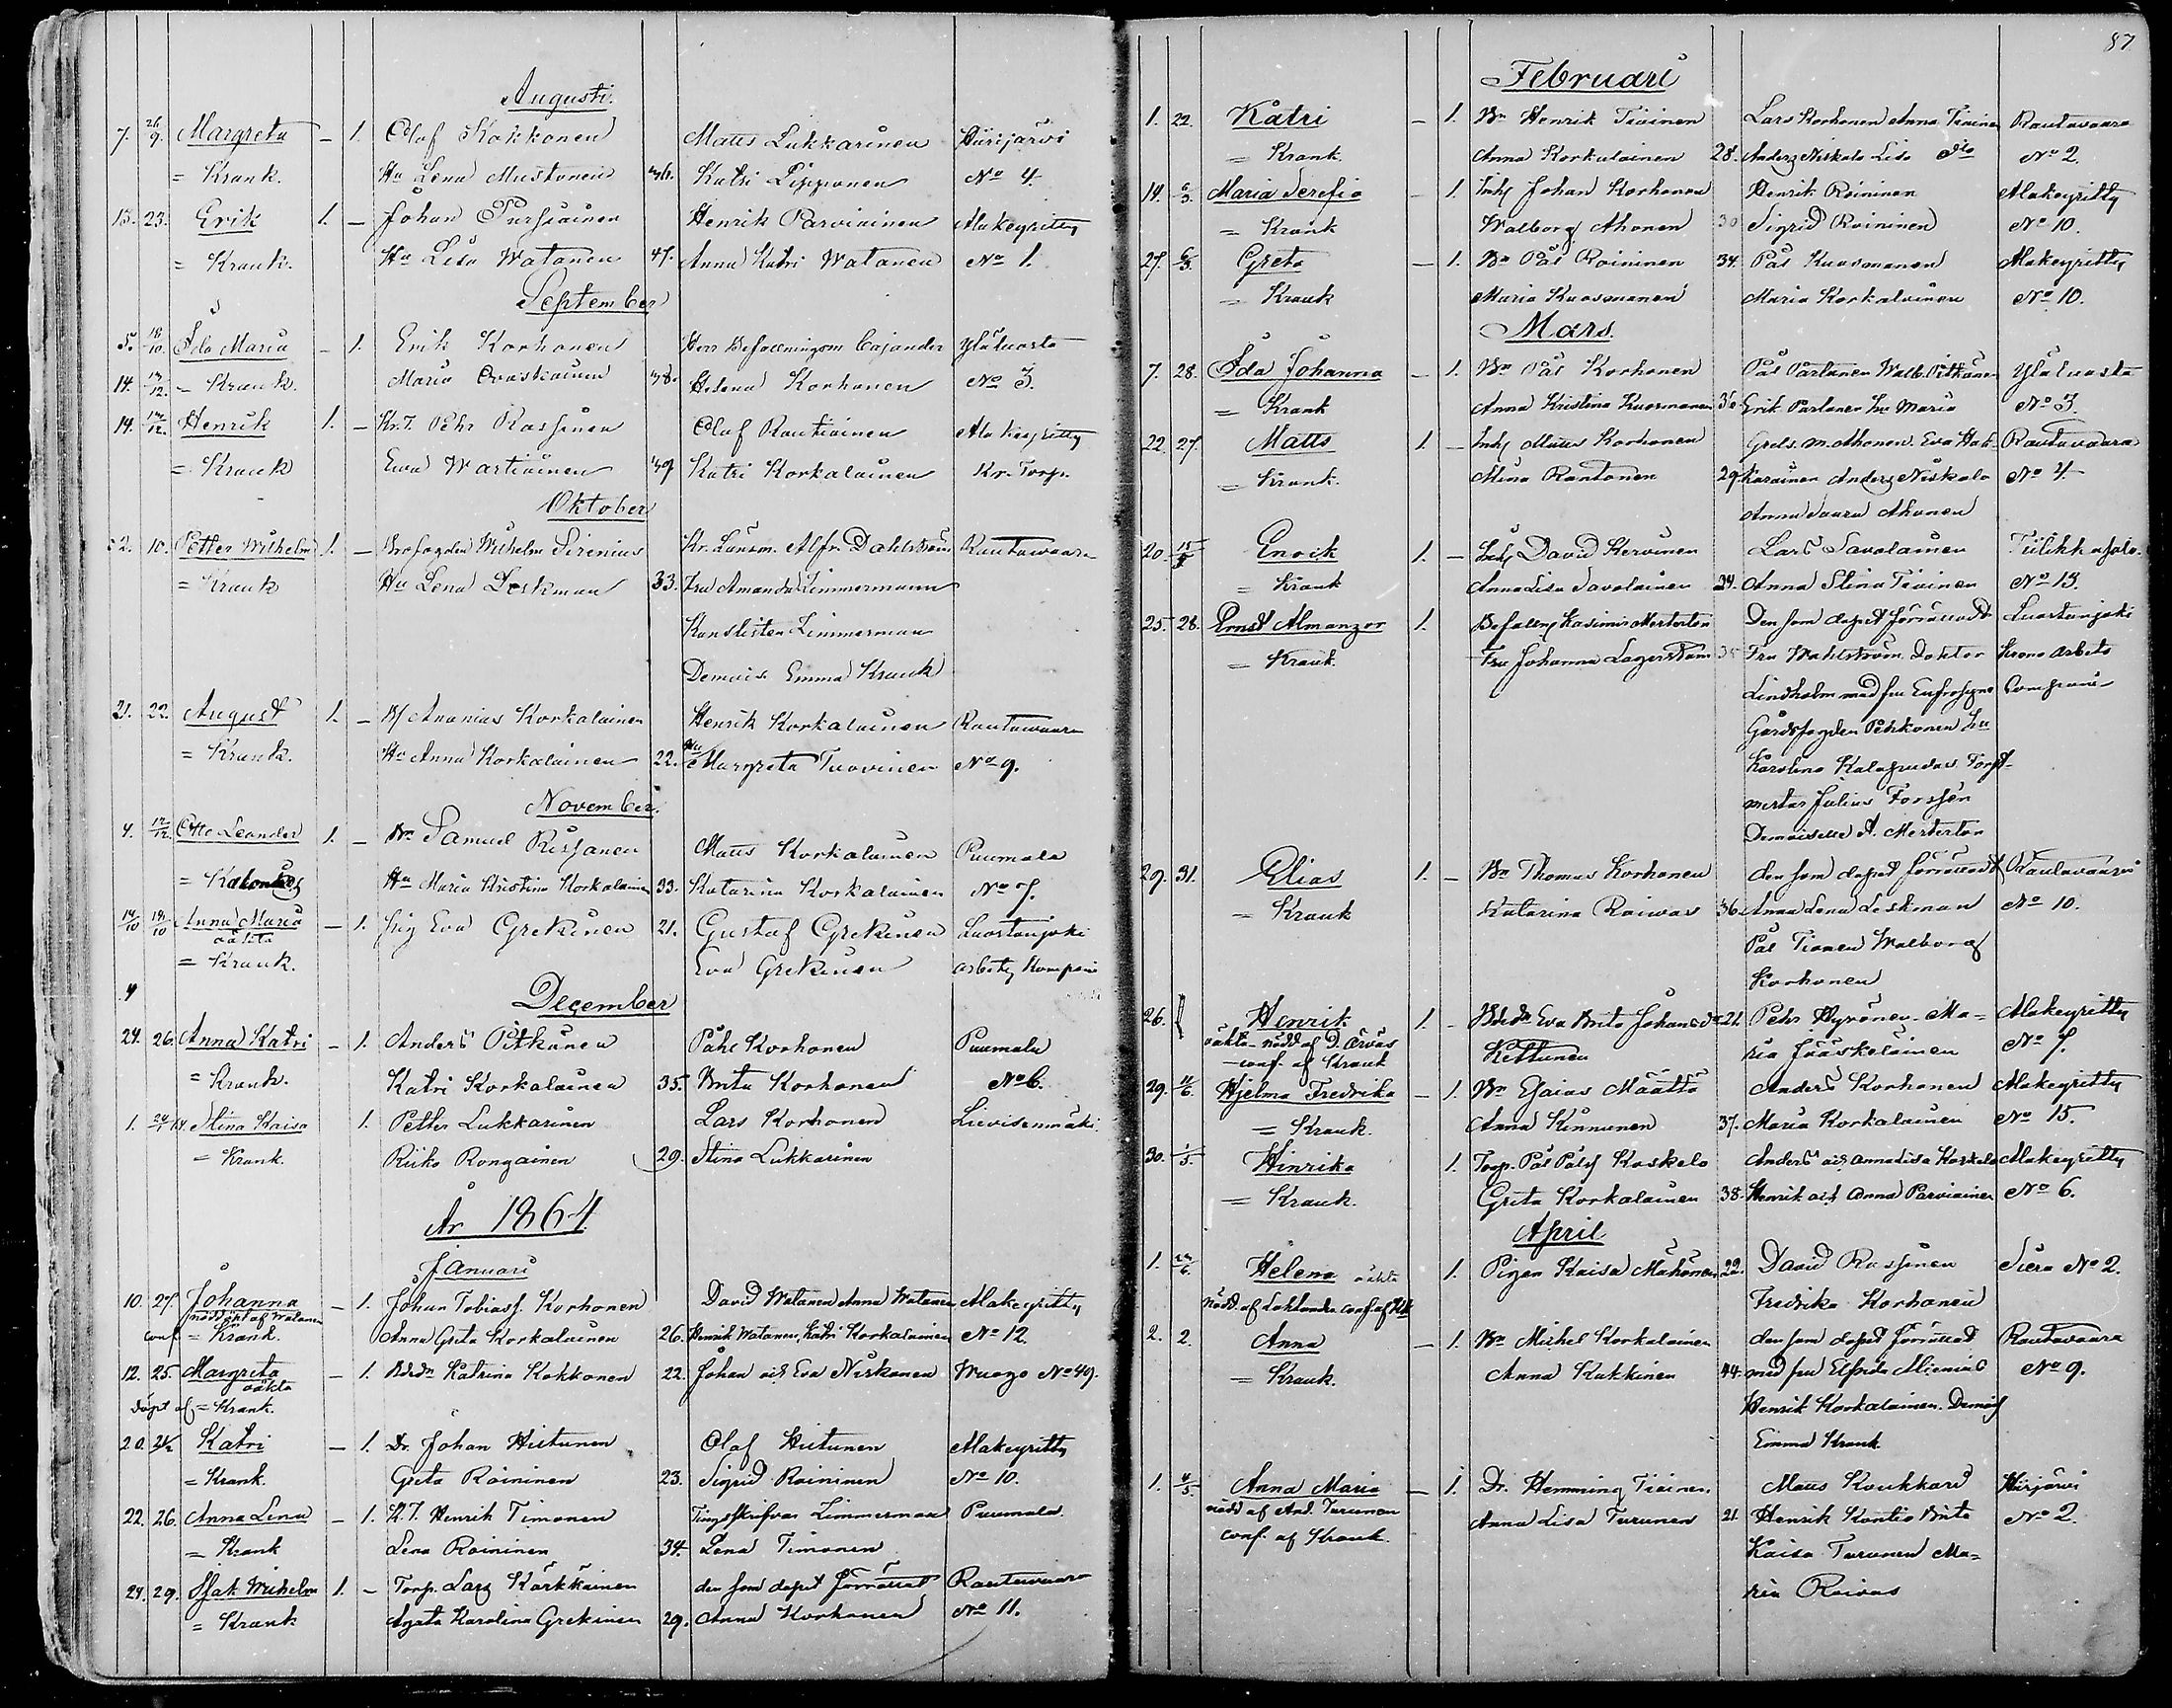 Augusti.
7. 26/9. Margreta – 1. Olof Kokkonen Matts Lukkarinen Hiirijärvi
= Krank. Hu Lena Mustonen 36. Katri Lipponen No 4.
15. 23. Erik 1. – Johan Pursiainen Henrik Parviainen Alakeyritty
= Krank. Hu Lisa Watanen 47. Anna Katri Watanen No 1.
September
5. 18/10. Ida Maria – 1. Erik Korhonen Herr Befallningsm Cajander Yläluosta
14. = Krank. Maria Ovaskainen 38. Helena Korhonen No 3.
14. Henrik 1. – Kr. T. Pehr Rassinen Olof Rautiainen Alakeyritty
= Krank Eva Wartiainen 39 Katri Korkalainen Kr. Torp.
Oktober
2. 10. Petter Wilhelm 1. – Brofogden Wilhelm Sirenius Kr. Länsm. Alfr. Dahlström Rautavaara
= Krank Hu Lena Leskman 33. Fru Amanda Zimmermann
Kanslisten Zimmerman
Demois. Emma Krank
21. 22. August 1. – Bf Ananias Korkalainen Henrik Korkalainen Rautavaara
= Krank. Hu Anna Korkalainen 22. Hu Margreta Tuovinen No 9.
November.
4. 17/12. Otto Leander 1. – Bn Samuel Rissanen Matts Korkalainen Puumala
= Hu Maria Kristina Korkalainen 33. Katarina Korkalainen No 7.
Anna Maria – 1. Eva Grekinen 21. Gustaf Grekinen Luostanjoki
oäkta
= Krank. Eva Grekinen arbets Kompani
4
December
24. 26. Anna Katri – 1. Anders Pitkänen Påhl Korhonen Puumala
= Krank. Katri Korkalainen 35. Brita Korhonen No 6.
1. 24/1 Stina Kaisa 1. Petter Lukkarinen Lars Korhonen Lievisenmäki
= Krank. Riika Rongainen 29. Stina Lukkarinen
År 1864
Januari
10. 27. Johanna – 1. Johan Tobiass. Korhonen David Watanen Anna Watanen Alakeyritty
nöddöpt af Watanen
conf = Krank. Anna Greta Korkalainen 26. Henrik Watanen, Katri Korkalainen No 12.
12. 25. Margreta – 1. Bdedr Katrina Kokkonen 22. Johan och Eva Niskanen Wuogo No 49.
oäkta
döpt af = Krank.
20. 2/2 Katri – 1. Dr. Johan Hiltunen Olof Hiltunen Alakeyritty
= Krank. Greta Roininen 23. Sigrid Roininen No 10.
22. 26. Anna Lena – 1. K. T. Henrik Timonen Tingsskrifvar Zimmerman Puumala
= Krank Lena Roininen 34. Lena Timonen
24. 29. Isak Wilhelm 1. – Torp. Lars Kärkkäinen den som dopet förrättat Rautavaara
= Krank Agata Karolina Grekinen 29. Anna Korhonen No 11.
87
Februari
1. 22. Katri – 1. Bn Henrik Tiainen Lars Korhonen Anna Tiainen Rautavaara
= Krank. Anna Korkalainen 28. Anders Niskala Lisa dto No 2.
14. 6/3. Maria Serefia – 1. Inh Johan Korhonen Henrik Roininen Alakeyritty
= Krank Walborg Ahonen 30 Sigrid Roininen No 10.
27. 6/3. Greta – 1. Bn Pål Roininen 34. Pål Kuosmanen Alakeyritty
= Krank Maria Kuosmanen Maria Korkalainen No 10.
Mars.
7. 28. Ida Johanna – 1. Bn Pål Korhonen Pål Partanen Walb. Pitkänen Yläluosta
= Krank Anna Kristina Kuosmanen 36 Erik Partanen hu Maria No 3.
22. 27. Matts 1. – Inh Matts Korhonen Grels. M. Ahonen. Eva Hak- Rautavaara
= Krank. Stina Rantonen 29 karainen Anders Niskala No 4.
Anna Saara Ahonen
20. Enock 1. – Inh David Kervinen Lars Savolainen Tiilikkasalo.
= Krank AnnaLisa Savolainen 34. Anna Stina Tiainen No 13.
25. 28. Ernst Almanzor 1. Befallm Kasimir Merterton Den som dopet förrättadt Luostanjoki
= Krank. Fru Johanna Lagerstam Fru Wahlström Doktor Krono arbets
Lindholm med fru Eufrosyne Compani
Gårdsfogden Pehkonen hu
Karolina Kalajoudas Forst-
mester Julius Forssén
Demoiselle A. Merterton
29. 31. Elias 1. – Bn Thomas Korhonen den som dopet förrättadt Rautavaara
= Krank Katarina Raiwas 36 Anna Lena Leskman No 10.
Pål Tianen Walborg
Korhonen
26. Henrik 1. – Bdedr Eva Brita Johansdr 21. Pehr Hyvönen. Ma- Alakeyritty
oäkta nödd af D. Orvas Kettunen ria Jääskeläinen No 7.
conf. af Krank
29. 11/6. Hjelma Fredrika – 1. Bn Esaias Määttä Anders Korhonen Alakeyritty
= Krank. Anna Kinnunen 37. Maria Korkalainen No 15.
30. 1/5. Hinrika 1. Torp. Pål Pålss Koskelo Anders och Annalisa Koskelo Alakeyritty
= Krank. Greta Korkalainen 38. Henrik och Anna Parviainen No 6.
April
1. Helena oäkta 1. Pigan Kaisa Mähönen 22. David Rassinen Siera No 2.
nödd. af Fredrika Korhonen
2. 2. Anna – 1. Bn Michel Korkalainen den som dopet förrättad Rautavaara
= Krank. Anna Kukkinen 44. med fru Elfrida Alcenius No 9.
Henrik Korkalainen. Demois
Emma Krank
1. 4/5. Anna Maria – 1. Dr. Hemming Tiainen Matts Koukkari Hiirjärvi
nödd af And. Turunen Anna Lisa Turunen 21 Henrik Kontio Brita No 2.
conf. af Krank. Kaisa Turunen Ma-
ria Roivas